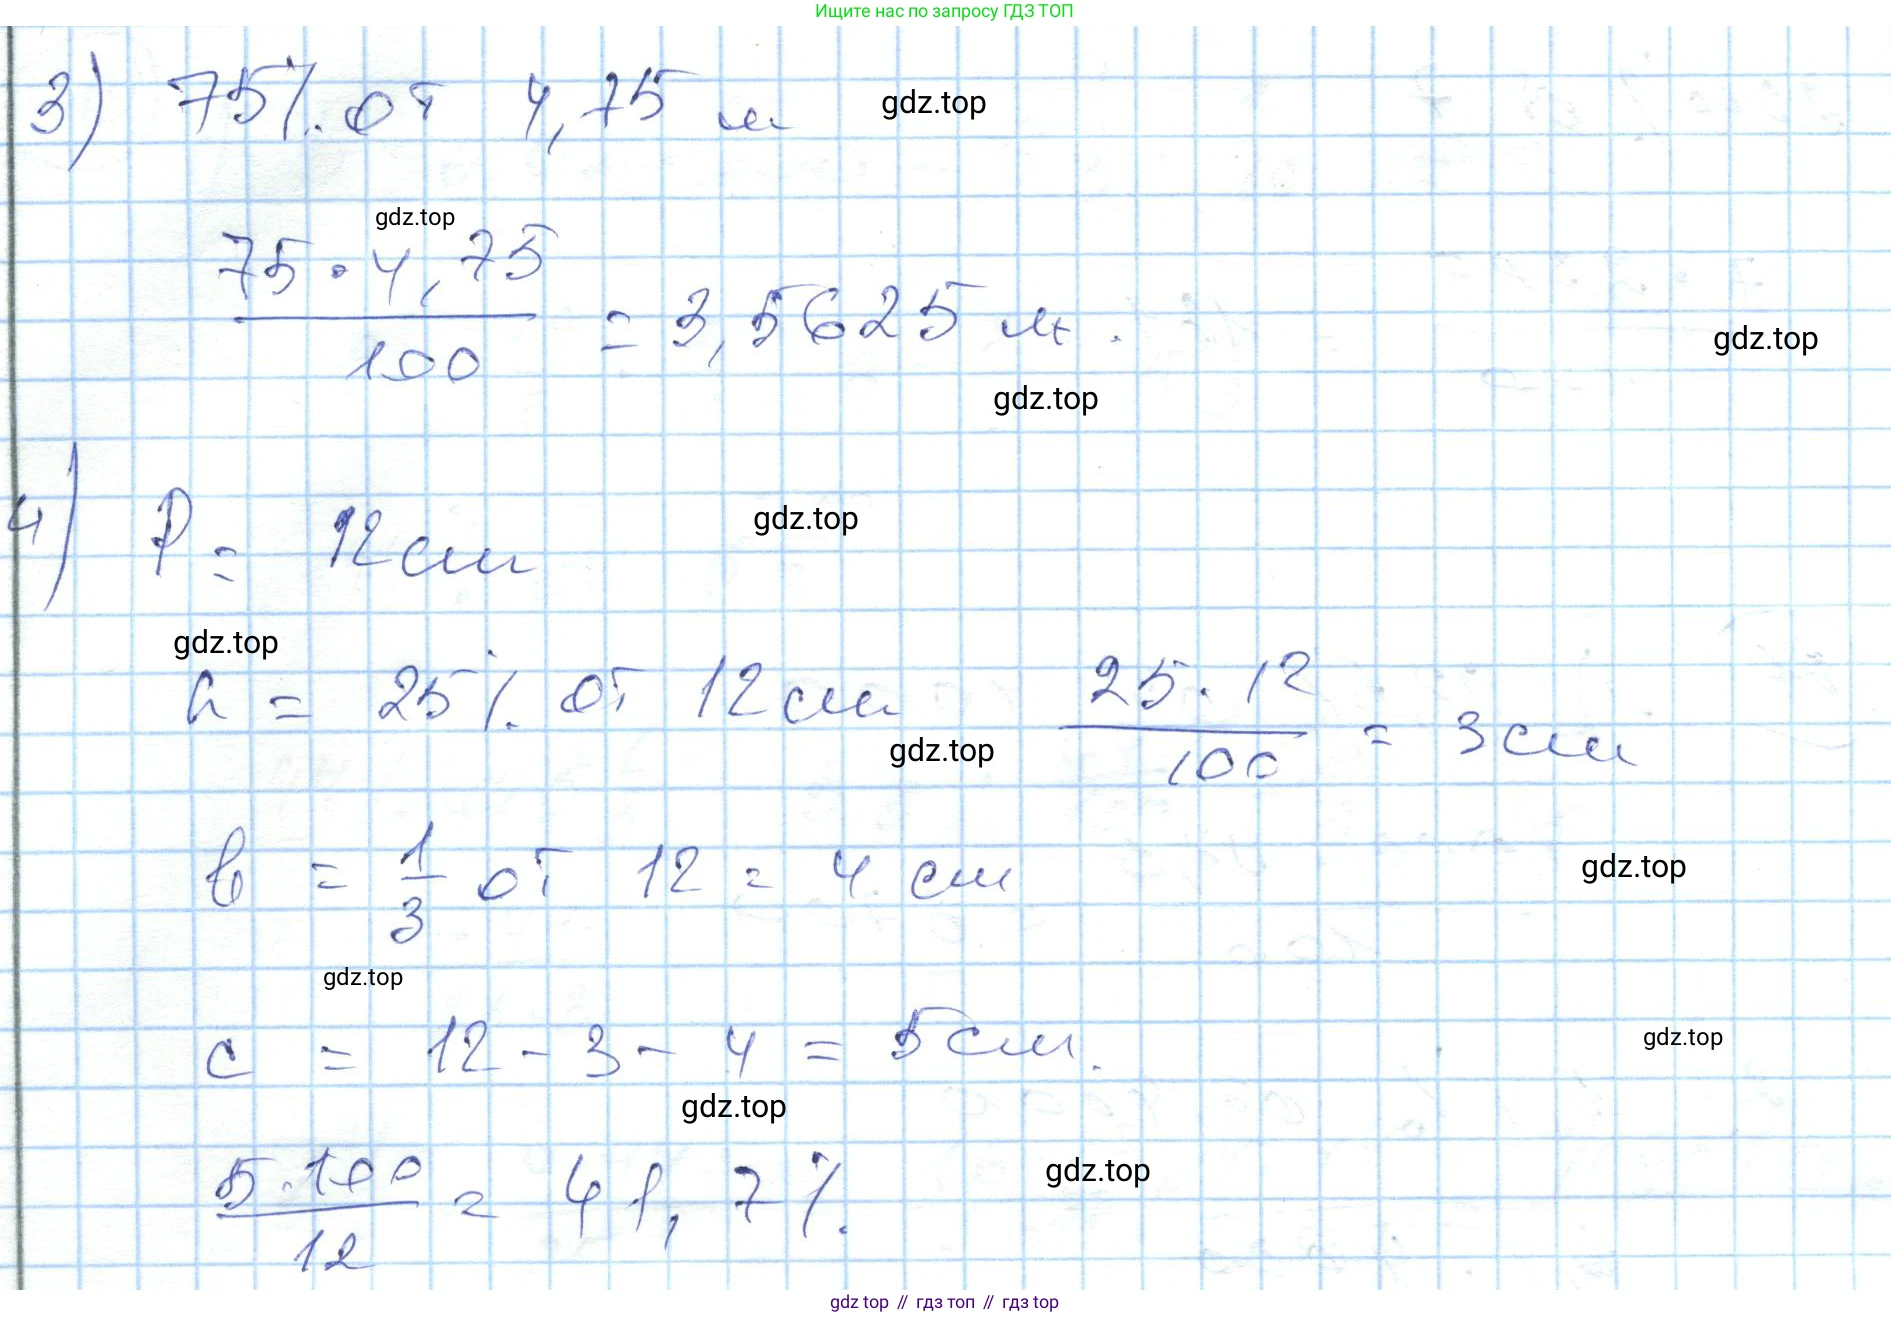 Ищите нас по запросу ГДЗ ТОП
3) 75% от 4,75 м
gdz.top
gdz.top
75 · 4,75
100
= 3,5625 м.
gdz.top
gdz.top
4) P = 12 см
gdz.top
gdz.top
a = 25% от 12 см
25 · 12
100
= 3 см
gdz.top
b = 1/3 от 12 = 4 см
gdz.top
gdz.top
c = 12 - 3 - 4 = 5 см.
gdz.top
gdz.top
5 · 100
12
= 41,7%
gdz.top
gdz top // гдз топ // гдз top